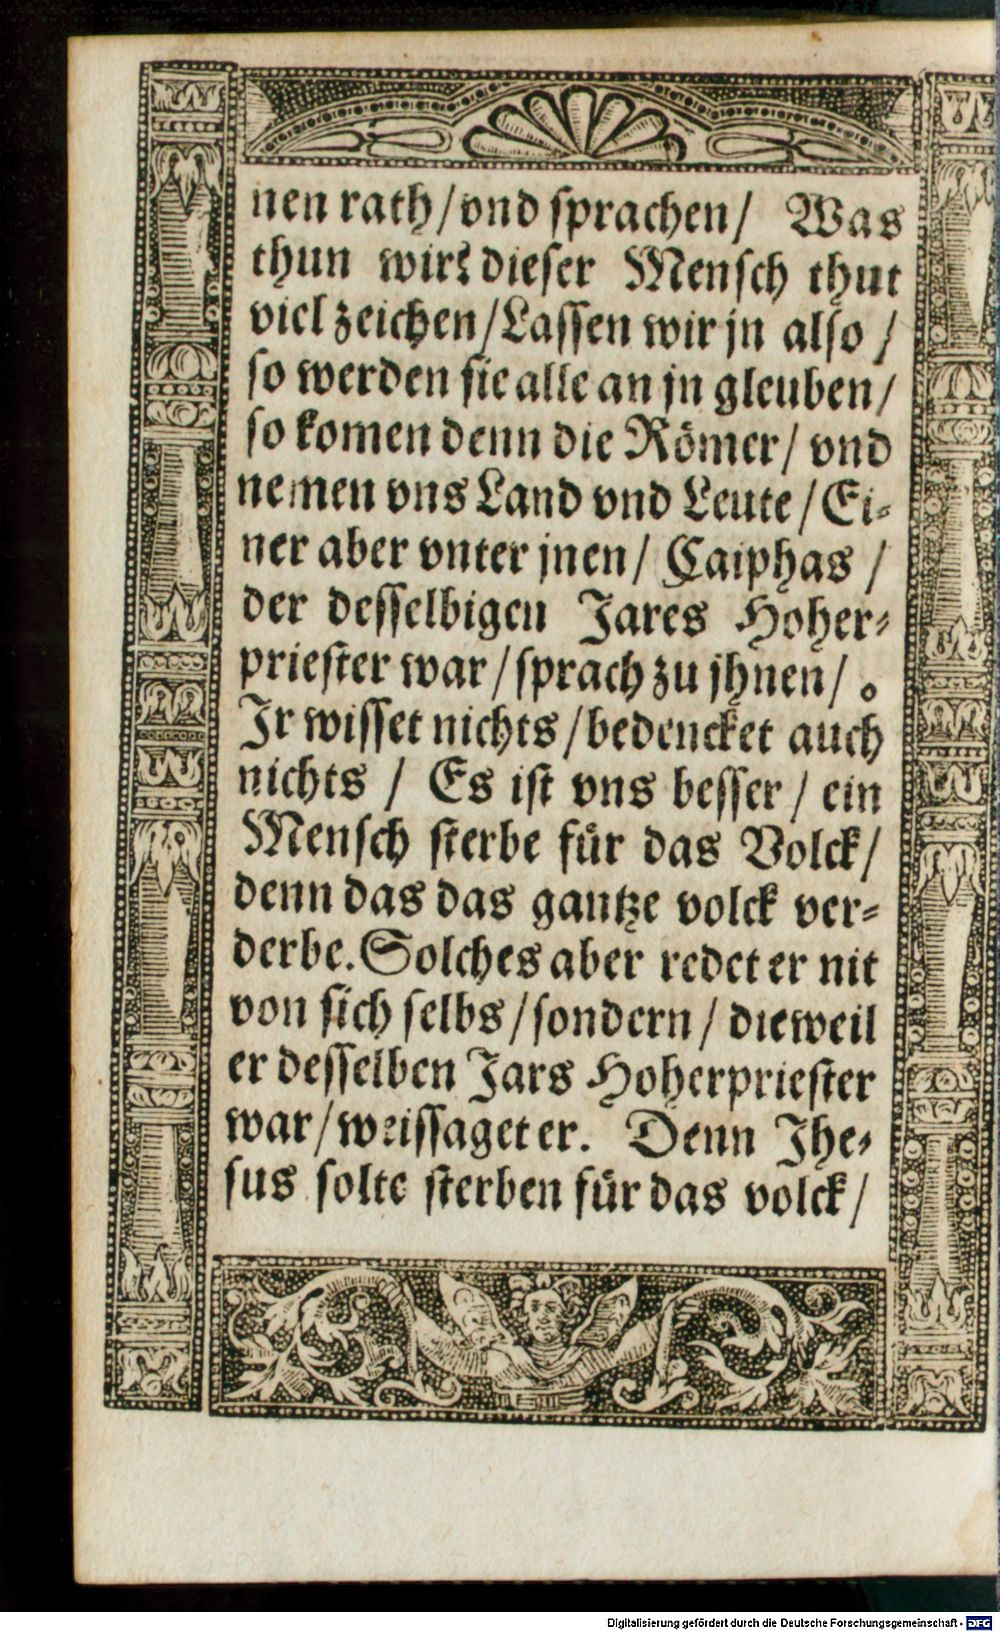 nen rath/vnd ſprachen/ Was
thun wir? dieſer Menſch thut
viel zeichen/Laſſen wir jn alſo/
ſo werden ſie alle an jn gleuben/
ſo komen denn die Römer/ vnd
nemen vns Land vnd Leute/Ei⸗
ner aber vnter jnen/ Caiphas/
der deſſelbigen Jares Hoher⸗
prieſter war/ſprach zu jhnen/
Jr wiſſet nichts/bedencket auch
nichts/ Es iſt vns beſſer/ ein
Menſch ſterbe für das Volck/
denn das das gantze volck ver⸗
derbe. Solches aber redet er nit
von ſich ſelbs/ſondern/ dieweil
er deſſelben Jars Hoherprieſter
war/weiſſaget er. Denn Jhe⸗
ſus ſolte ſterben für das volck/
Digitalisierung gefördert durch die Deutsche Forschungsgemeinschaft - DFG